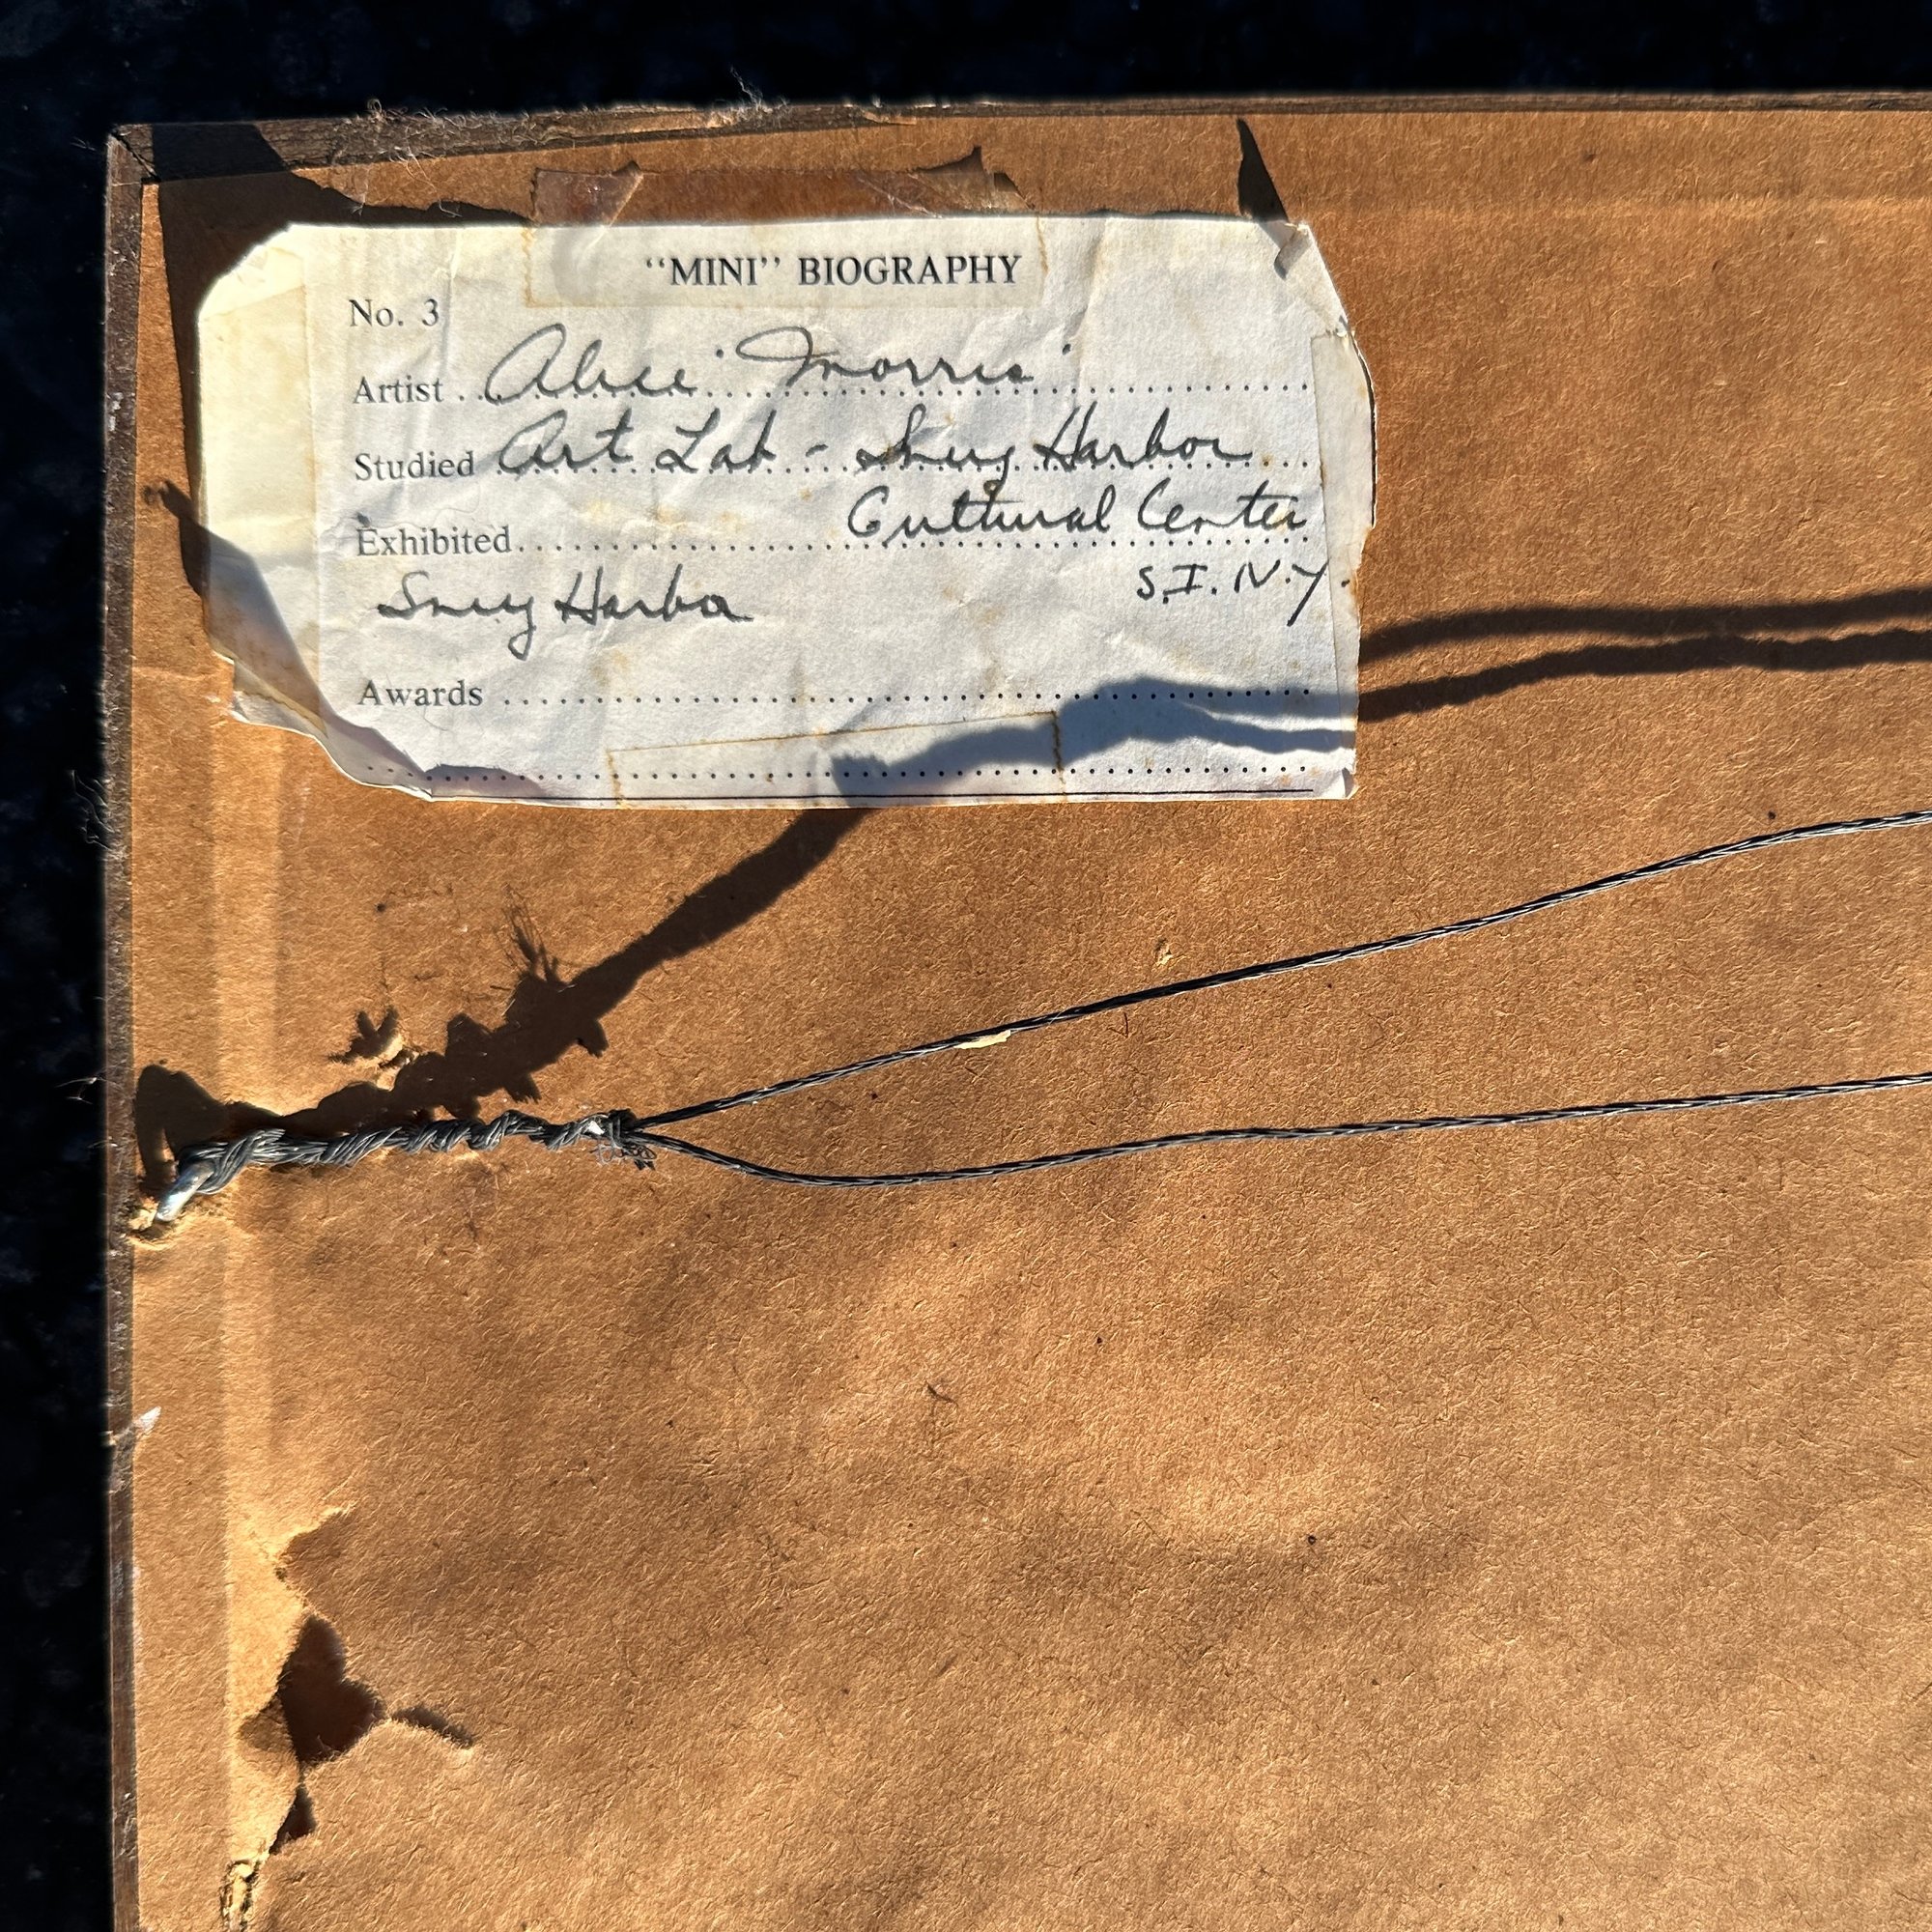 “MINI” BIOGRAPHY
No. 3
Artist Alice Morris
Studied Art Lab - Snug Harbor
Cultural Center
Exhibited
S.I. N.Y.
Snug Harbor
Awards